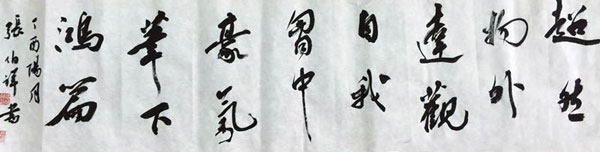 超然
物外
達觀
自我
胷中
豪氣
筆下
鴻篇
丁酉陽月
張伯祥書